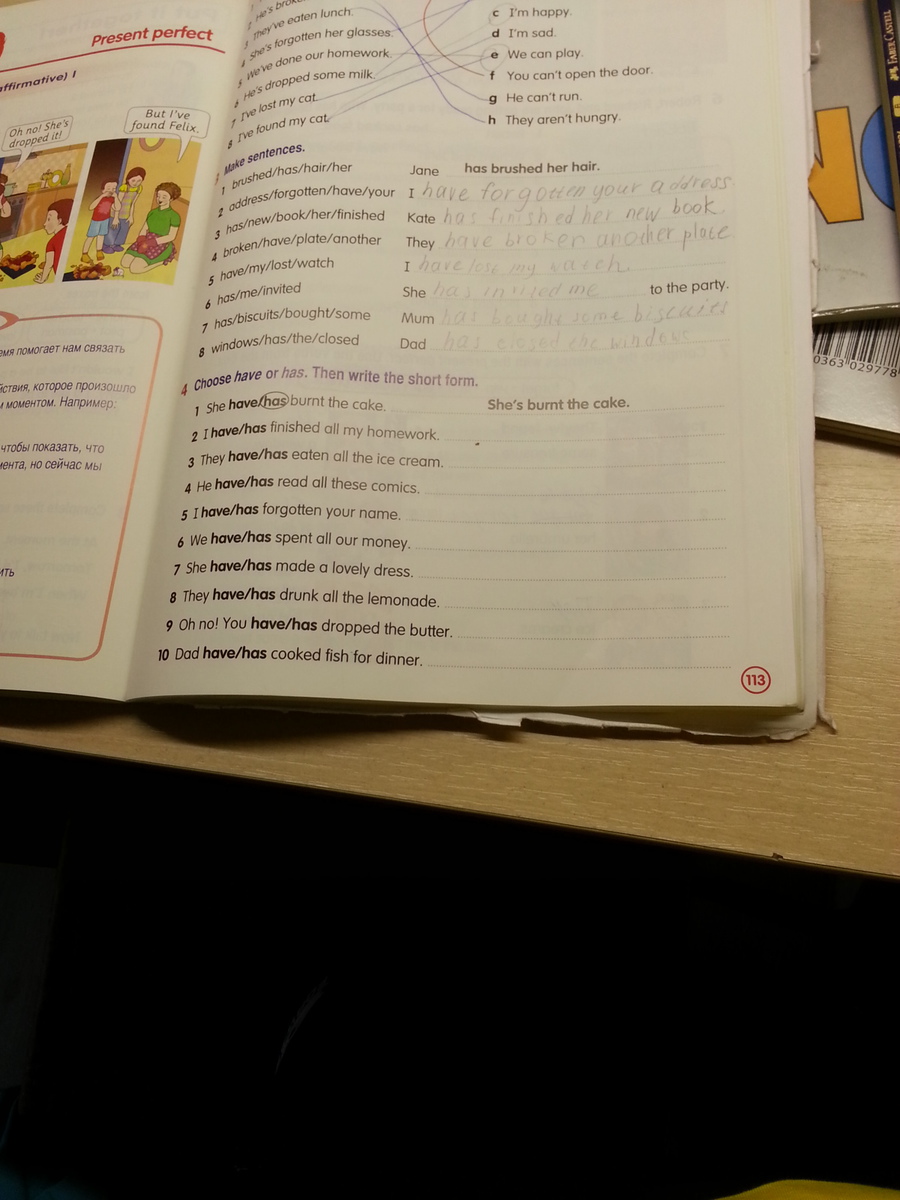 Present perfect
affirmative) I
Oh no! She's
dropped it!
But I've
found Felix.
емя помогает нам связать
йствия, которое произошло
м моментом. Например:
чтобы показать, что
мента, но сейчас мы
ить
2 He's broke
3 They've eaten lunch.
4 She's forgotten her glasses.
5 We've done our homework.
6 He's dropped some milk.
7 I've lost my cat.
8 I've found my cat.
c I'm happy.
d I'm sad.
e We can play.
f You can't open the door.
g He can't run.
h They aren't hungry.
3 Make sentences.
1 brushed/has/hair/her Jane has brushed her hair.
2 address/forgotten/have/your I have forgotten your address.
3 has/new/book/her/finished Kate has finished her new book.
4 broken/have/plate/another They have broken another plate
5 have/my/lost/watch I have lost my watch.
6 has/me/invited She has invited me to the party.
7 has/biscuits/bought/some Mum has bought some biscuits
8 windows/has/the/closed Dad has closed the windows
4 Choose have or has. Then write the short form.
1 She have/has burnt the cake. She's burnt the cake.
2 I have/has finished all my homework.
3 They have/has eaten all the ice cream.
4 He have/has read all these comics.
5 I have/has forgotten your name.
6 We have/has spent all our money.
7 She have/has made a lovely dress.
8 They have/has drunk all the lemonade.
9 Oh no! You have/has dropped the butter.
10 Dad have/has cooked fish for dinner.
113
FABER CASTELL
0363 029778